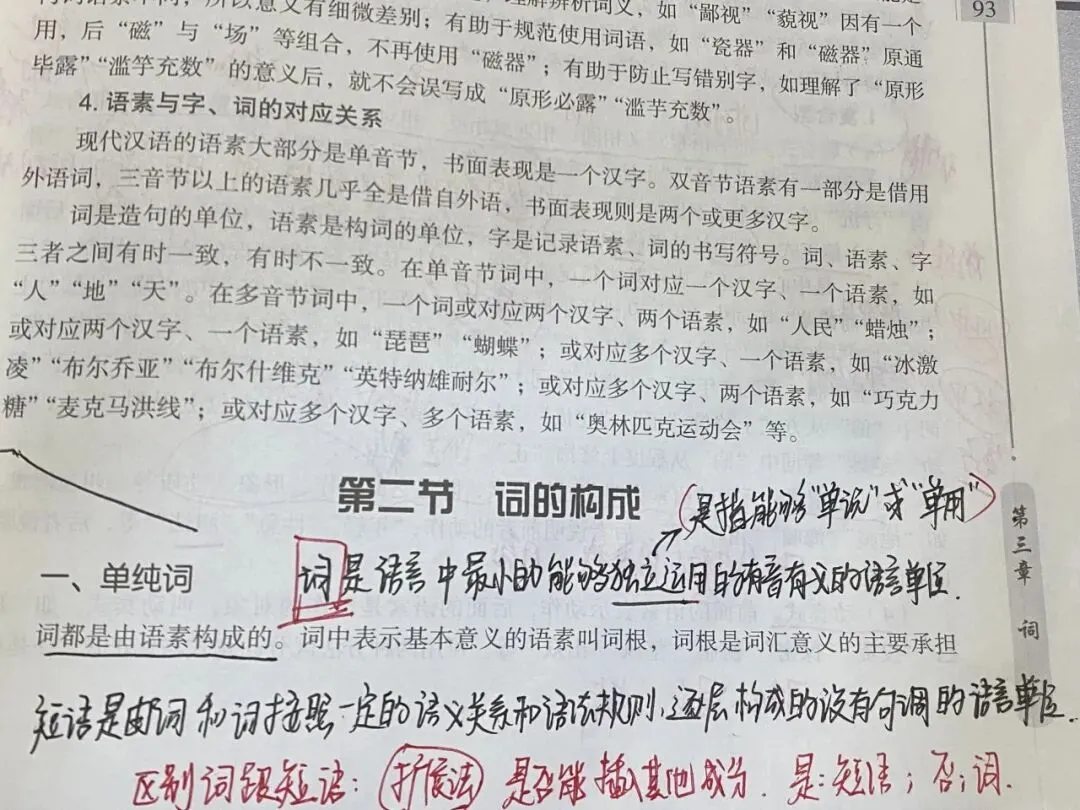 用，后“磁”与“场”等组合，不再使用“磁器”；有助于防止写错别字，如理解了“原形
93
同，所以意义有细微差别；有助于规范使用词语，如“瓷器”和“磁器”原通
理解辨析词义，如“鄙视”“藐视”因有一个
毕露”“滥竽充数”的意义后，就不会误写成“原形必露”“滥芋充数”。
4. 语素与字、词的对应关系
现代汉语的语素大部分是单音节，书面表现是一个汉字。双音节语素有一部分是借用
外语词，三音节以上的语素几乎全是借自外语，书面表现则是两个或更多汉字。
词是造句的单位，语素是构词的单位，字是记录语素、词的书写符号。词、语素、字
三者之间有时一致，有时不一致。在单音节词中，一个词对应一个汉字、一个语素，如
“人”“地”“天”。在多音节词中，一个词或对应两个汉字、两个语素，如“人民”“蜡烛”；
或对应两个汉字、一个语素，如“琵琶”“蝴蝶”；或对应多个汉字、一个语素，如“冰激
凌”“布尔乔亚”“布尔什维克”“英特纳雄耐尔”；或对应多个汉字、两个语素，如“巧克力
糖”“麦克马洪线”；或对应多个汉字、多个语素，如“奥林匹克运动会”等。
第二节 词的构成
是指能够“单说”或“单用”
一、单纯词
词是语言中最小的能够独立运用的有音有义的语言单位.
词都是由语素构成的。词中表示基本意义的语素叫词根，词根是词汇意义的主要承担
短语是由词和词按照一定的语义关系和语法规则,逐层构成的没有句调的语言单位.
区别词跟短语：扩展法 是否能插入其他成分. 是:短语；否:词.
第三章 词